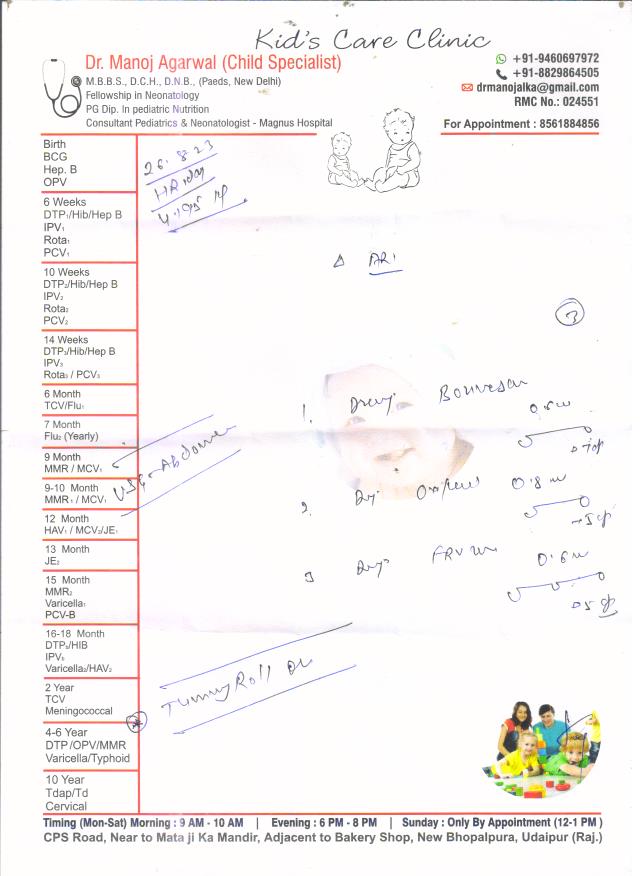 Kid's Care Clinic
Dr. Manoj Agarwal (Child Specialist)
M.B.B.S., D.C.H., D.N.B., (Paeds, New Delhi)
Fellowship in Neonatology
PG Dip. In pediatric Nutrition
Consultant Pediatrics & Neonatologist - Magnus Hospital
+91-9460697972
+91-8829864505
drmanojalka@gmail.com
RMC No.: 024551
For Appointment : 8561884856
Birth
BCG
Hep. B
OPV
6 Weeks
DTP₁/Hib/Hep B
IPV₁
Rota₁
PCV₁
10 Weeks
DTP₂/Hib/Hep B
IPV₂
Rota₂
PCV₂
14 Weeks
DTP₃/Hib/Hep B
IPV₃
Rota₃ / PCV₃
6 Month
TCV/Flu₁
7 Month
Flu₂ (Yearly)
9 Month
MMR / MCV₁
9-10 Month
MMR₁ / MCV₁
12 Month
HAV₁ / MCV₂/JE₁
13 Month
JE₂
15 Month
MMR₂
Varicella₁
PCV-B
16-18 Month
DTP₅/HIB
IPV₅
Varicella₂/HAV₂
2 Year
TCV
Meningococcal
4-6 Year
DTP/OPV/MMR
Varicella/Typhoid
10 Year
Tdap/Td
Cervical
26.8.23
Δ ARI
3
1.
0.8
USG - Abdomen
2.
0.8
3
0.6
Tummy Roll On
Timing (Mon-Sat) Morning : 9 AM - 10 AM | Evening : 6 PM - 8 PM | Sunday : Only By Appointment (12-1 PM )
CPS Road, Near to Mata ji Ka Mandir, Adjacent to Bakery Shop, New Bhopalpura, Udaipur (Raj.)